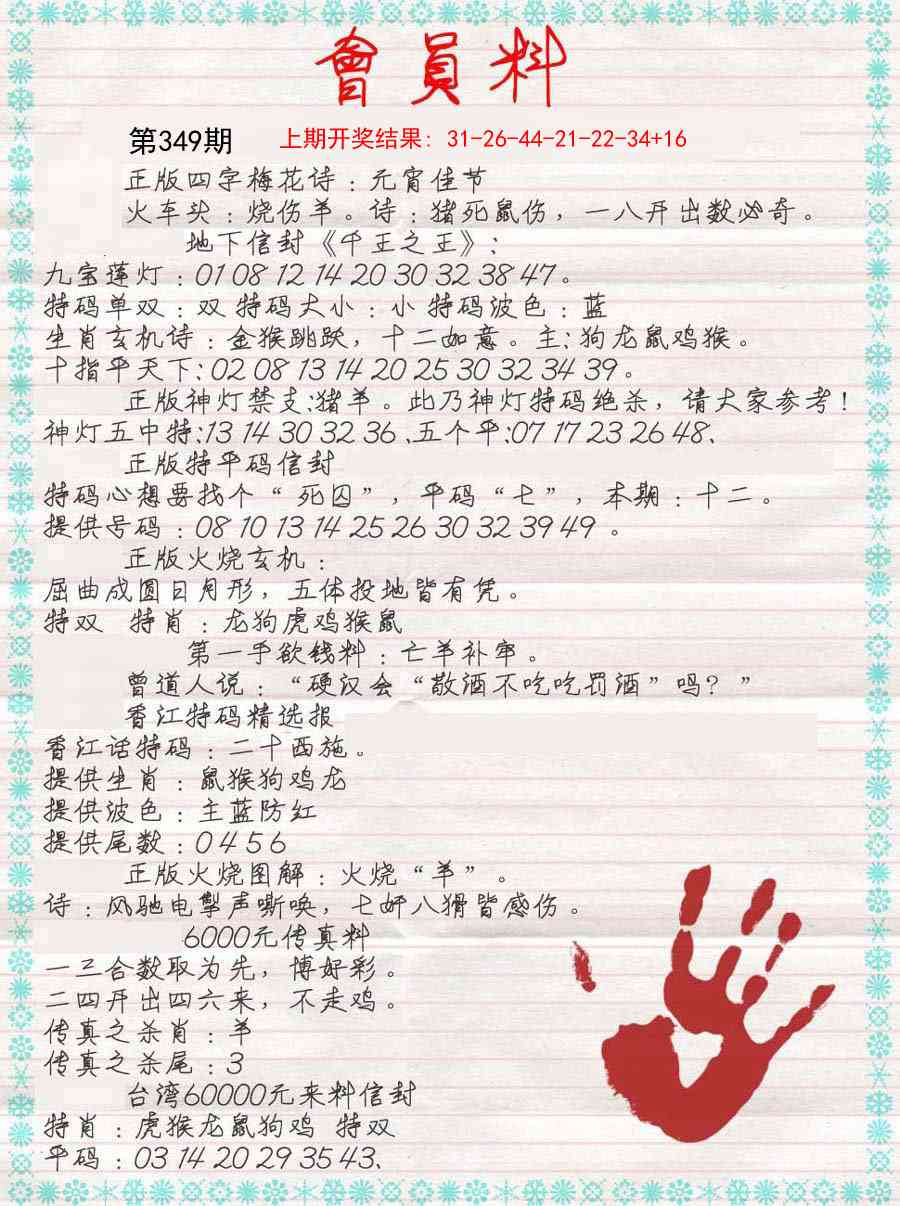 會員料
第349期 上期开奖结果: 31-26-44-21-22-34+16
正版四字梅花诗:元宵佳节
火车头:烧伤羊。诗:猪死鼠伤,一八开出数必奇。
地下信封《千王之王》:
九宝莲灯:01 08 12 14 20 30 32 38 47。
特码单双:双 特码大小:小 特码波色:蓝
生肖玄机诗:金猴跳跃,十二如意。主:狗龙鼠鸡猴。
十指平天下:02 08 13 14 20 25 30 32 34 39。
正版神灯禁支:猪羊。此乃神灯特码绝杀,请大家参考!
神灯五中特:13 14 30 32 36、五个平:07 17 23 26 48、
正版特平码信封
特码心想要找个“死囚”,平码“七”,本期:十二。
提供号码:08 10 13 14 25 26 30 32 39 49 。
正版火烧玄机:
屈曲成圆日月形,五体投地皆有凭。
特双 特肖:龙狗虎鸡猴鼠
第一手欲钱料:亡羊补牢。
曾道人说:“硬汉会“敬酒不吃吃罚酒”吗?”
香江特码精选报
香江话特码:二十西施。
提供生肖:鼠猴狗鸡龙
提供波色:主蓝防红
提供尾数:0 4 5 6
正版火烧图解:火烧“羊”。
诗:风驰电掣声嘶唤,七奸八猾皆感伤。
6000元传真料
一三合数取为先,博好彩。
二四开出四六来,不走鸡。
传真之杀肖:羊
传真之杀尾:3
台湾60000元来料信封
特肖:虎猴龙鼠狗鸡 特双
平码:03 14 20 29 35 43、